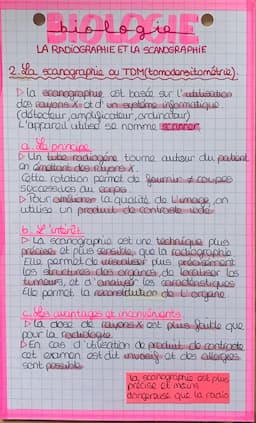 BIOLOGIE
biologie
LA RADIOGRAPHIE ET LA SCANOGRAPHIE
2. La scanographie ou TDM (tomodensitométrie).
▷ La scanographie est basée sur l'utilisation
des rayons X et d'un système informatique
(détecteur, amplificateur, ordinateur)
L'appareil utilisé se nomme scanner.
a. Le principe
▷ Un tube radiogène tourne autour du patient
en émettant des rayons X.
Cette rotation permet de fournir ≠ coupes
successives du corps
▷ Pour améliorer la qualité de l'image, on
utilise un produit de contraste iodé.
b. L'intérêt
▷ La scanographie est une technique plus
précise et plus sensible que la radiographie
Elle permet de visualiser plus précisément
les structures des organes, de localiser les
tumeurs, et d'analyser les caractéristiques
Elle permet la reconstitution de l'organe
c. Les avantages et inconvénients
▷ La dose de rayons X est plus faible que
pour la radiologie.
▷ En cas d'utilisation de produit de contraste
cet examen est dit invasif et des allergies
sont possible
La scanographie est plus
précise et moins
dangereuse que la radio